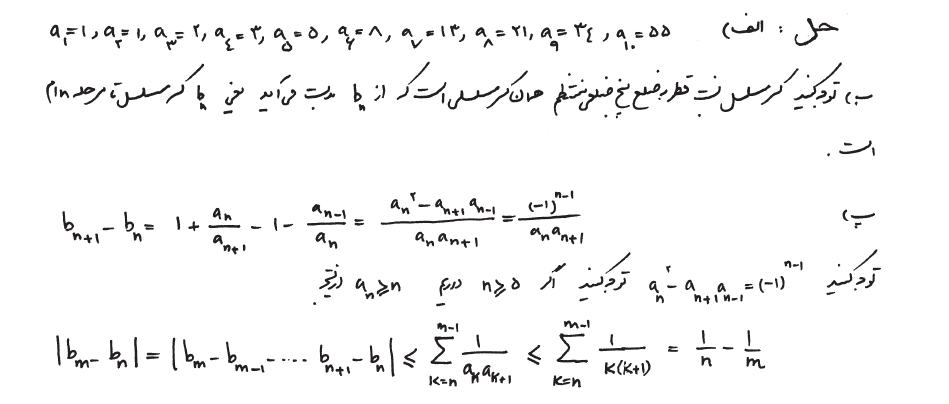 حل : الف) a₁=۱ , a₂=۱ , a₃=۲ , a₄=۳ , a₅=۵ , a₆=۸ , a₇=۱۳ , a₈=۲۱ , a₉=۳٤ , a₁₀=۵۵
ب) توجه کنید کسر مسلسل نسبت قطر به ضلع پنج ضلعی منتظم همان کسر مسلسلی است که از bₙ بدست می‌آید یعنی bₙ کسر مسلسل تا مرحله nام
است .
پ) bₙ₊₁ - bₙ = 1 + aₙ/aₙ₊₁ - 1 - aₙ₋₁/aₙ = (aₙ² - aₙ₊₁ aₙ₋₁)/(aₙ aₙ₊₁) = (-1)ⁿ⁻¹/(aₙ aₙ₊₁)
توجه کنید aₙ² - aₙ₊₁ aₙ₋₁ = (-1)ⁿ⁻¹ توجه کنید اگر n ≥ ۵ داریم aₙ ≥ n در نتیجه
|bₘ - bₙ| = |bₘ - bₘ₋₁ - .... bₙ₊₁ - bₙ| ≤ ∑_{k=n}^{m-1} 1/(aₖ aₖ₊₁) ≤ ∑_{k=n}^{m-1} 1/(k(k+1)) = 1/n - 1/m